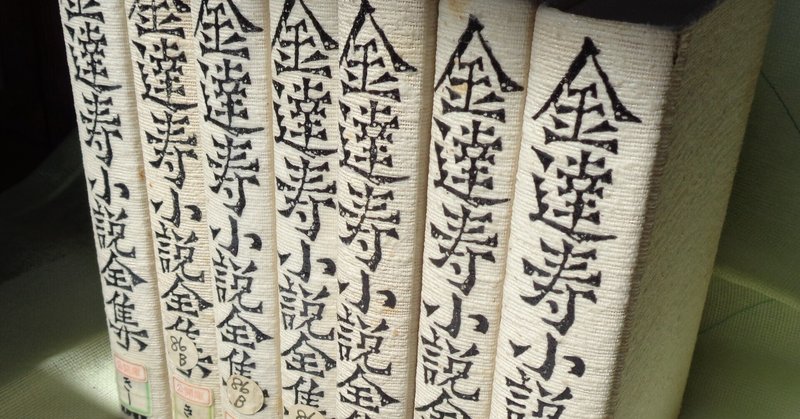 金達寿小説全集
金達寿小説全集
86
B
金達寿小説全集
86
B
金達寿小説全集
金達寿小説全
金達寿小説
金達寿小説